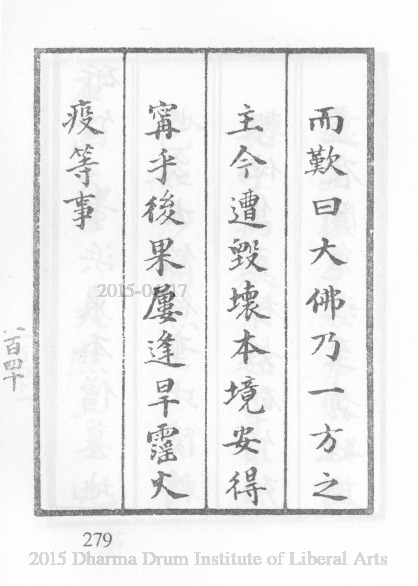 而歎曰大佛乃一方之
主今遭毀壞本境安得
甯乎後果屢逢旱霪火
疫等事
一百四十
279
2015-04-17
2015 Dharma Drum Institute of Liberal Arts